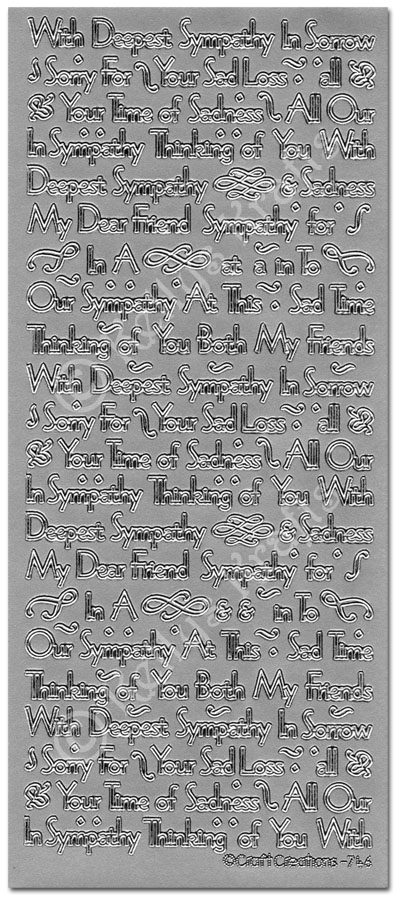 With Deepest Sympathy In Sorrow
Sorry For Your Sad Loss all
Your Time of Sadness All Our
In Sympathy Thinking of You With
Deepest Sympathy & Sadness
My Dear Friend Sympathy for
In A at a in To
Our Sympathy At This Sad Time
Thinking of You Both My Friends
With Deepest Sympathy In Sorrow
Sorry For Your Sad Loss all
Your Time of Sadness All Our
In Sympathy Thinking of You With
Deepest Sympathy & Sadness
My Dear Friend Sympathy for
In A & & in To
Our Sympathy At This Sad Time
Thinking of You Both My Friends
With Deepest Sympathy In Sorrow
Sorry For Your Sad Loss all
Your Time of Sadness All Our
In Sympathy Thinking of You With
©Craft Creations -746